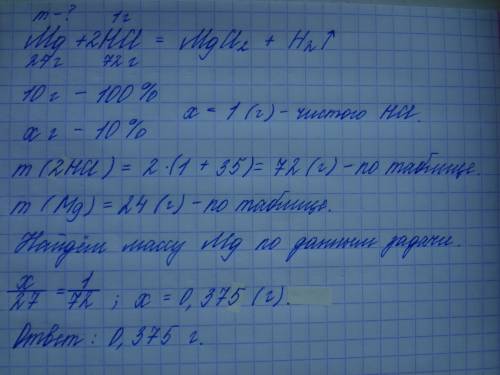 m-?        1г
Mg + 2HCl = MgCl₂ + H₂↑
27г   72г
10 г - 100%
x г - 10%
x = 1 (г) - чистого HCl.
m (2HCl) = 2·(1 + 35) = 72 (г) - по таблице.
m (Mg) = 24 (г) - по таблице.
Найдём массу Mg по данным задачи.
x/27 = 1/72 ; x = 0,375 (г).
Ответ: 0,375 г.